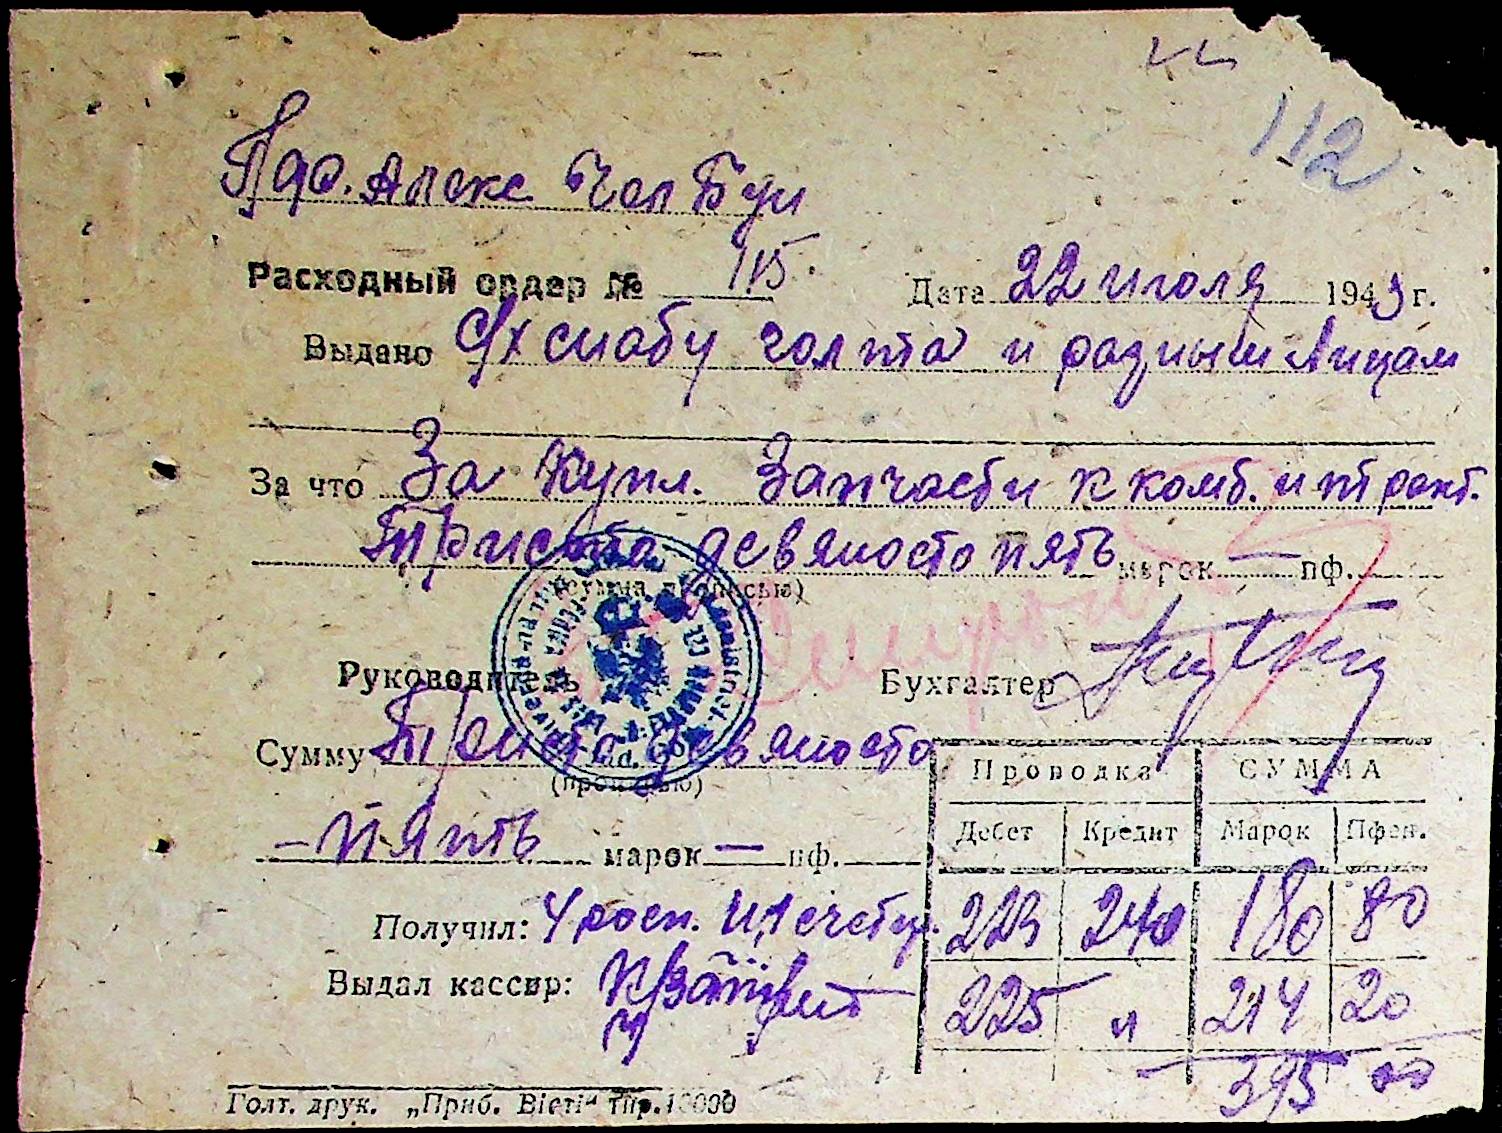 112
Расходный ордер № 115. Дата 22 июля 1943 г.
Выдано и разным лицам
За что За купл. Запчасти к комб. и тракт.
Триста девяносто пять марок — пф.
(сумма прописью)
Руководитель Бухгалтер
Сумму Триста девяносто
(прописью)
— пять марок — пф.
Проводка СУММА
Дебет Кредит Марок Пфен.
223 240 180 80
225 " 214 20
395 00
Получил: 4 росп.
Выдал кассир:
Голт. друк. „Приб. Вісті“ тир. 10000